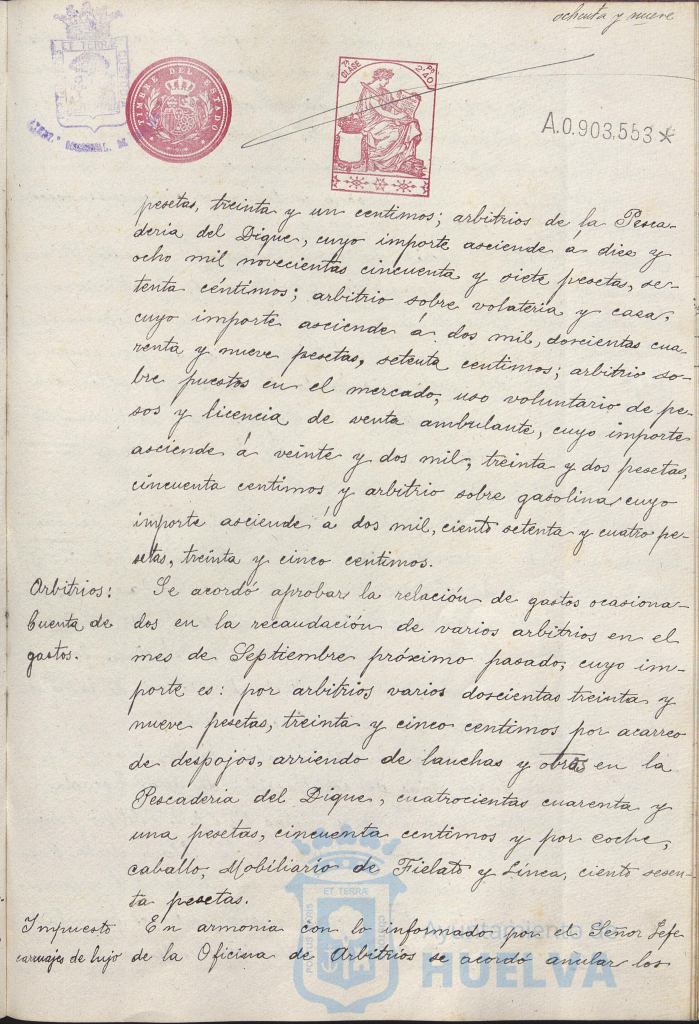 ochenta y nueve
ET TERRÆ
TIMBRE DEL ESTADO
7ª CLASE
2'40 PTS
A.0.903.553*
pesetas, treinta y un centimos; arbitrios de la Pesca-
deria del Dique, cuyo importe asciende a diez y
ocho mil novecientas cincuenta y siete pesetas, se-
tenta céntimos; arbitrio sobre volateria y casa,
cuyo importe asciende á dos mil, doscientas cua-
renta y nueve pesetas, setenta centimos; arbitrio so-
bre puestos en el mercado, uso voluntario de pe-
sos y licencia de venta ambulante, cuyo importe
asciende á veinte y dos mil, treinta y dos pesetas,
cincuenta centimos y arbitrio sobre gasolina cuyo
importe asciende á dos mil, ciento setenta y cuatro pe-
setas, treinta y cinco centimos.
Arbitrios:
Cuenta de
gastos.
Se acordó aprobar la relación de gastos ocasiona-
dos en la recaudación de varios arbitrios en el
mes de Septiembre próximo pasado, cuyo im-
porte es: por arbitrios varios doscientas treinta y
nueve pesetas, treinta y cinco centimos por acarreo
de despojos, arriendo de lanchas y obras en la
Pescaderia del Dique, cuatrocientas cuarenta y
una pesetas, cincuenta centimos y por coche,
caballo, Mobiliario de Fielato y Línea, ciento sesen-
ta pesetas.
Impuesto
carruajes de lujo
En armonia con lo informado por el Señor Jefe
de la Oficina de Arbitrios se acordó anular los
PORTUS MARIS
ET TERRÆ
Ayuntamiento de
HUELVA